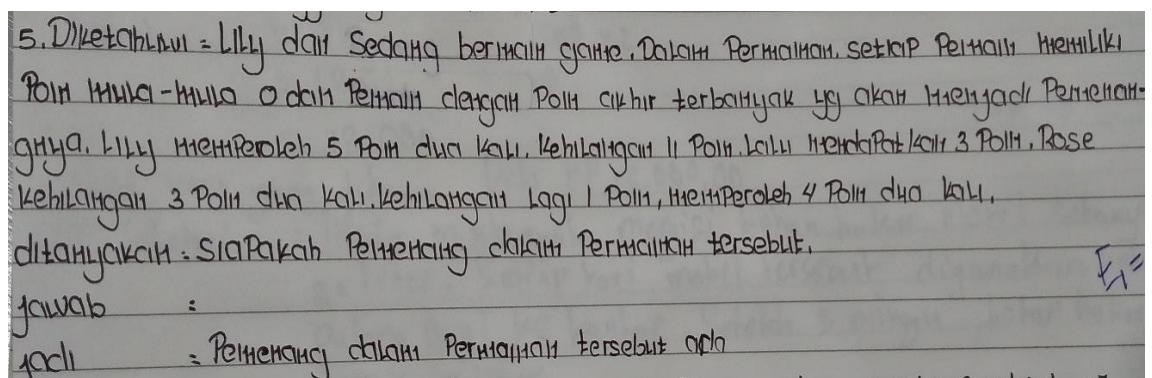 5. Diketahui = Lily dan Sedang bermain game. Dalam Permainan. setiap Pemain memiliki
Poin mula-mula 0 dan Pemain dengan Poin akhir terbanyak yg akan menjadi Pemenan-
gnya. Lily memperoleh 5 Poin dua kali. kehilangan 11 Poin. Lalu mendapatkan 3 Poin. Rose
kehilangan 3 Poin dua kali. kehilangan Lagi 1 Poin, memperoleh 4 Poin dua kali.
ditanyakan = Siapakah Pemenang dalam Permainan tersebut.
jawab :
jadi = Pemenang dalam Permainan tersebut ada